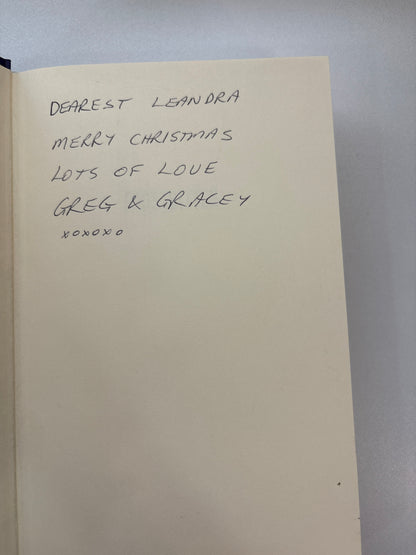 DEAREST LEANDRA
MERRY CHRISTMAS
LOTS OF LOVE
GREG & GRACEY
xoxoxo